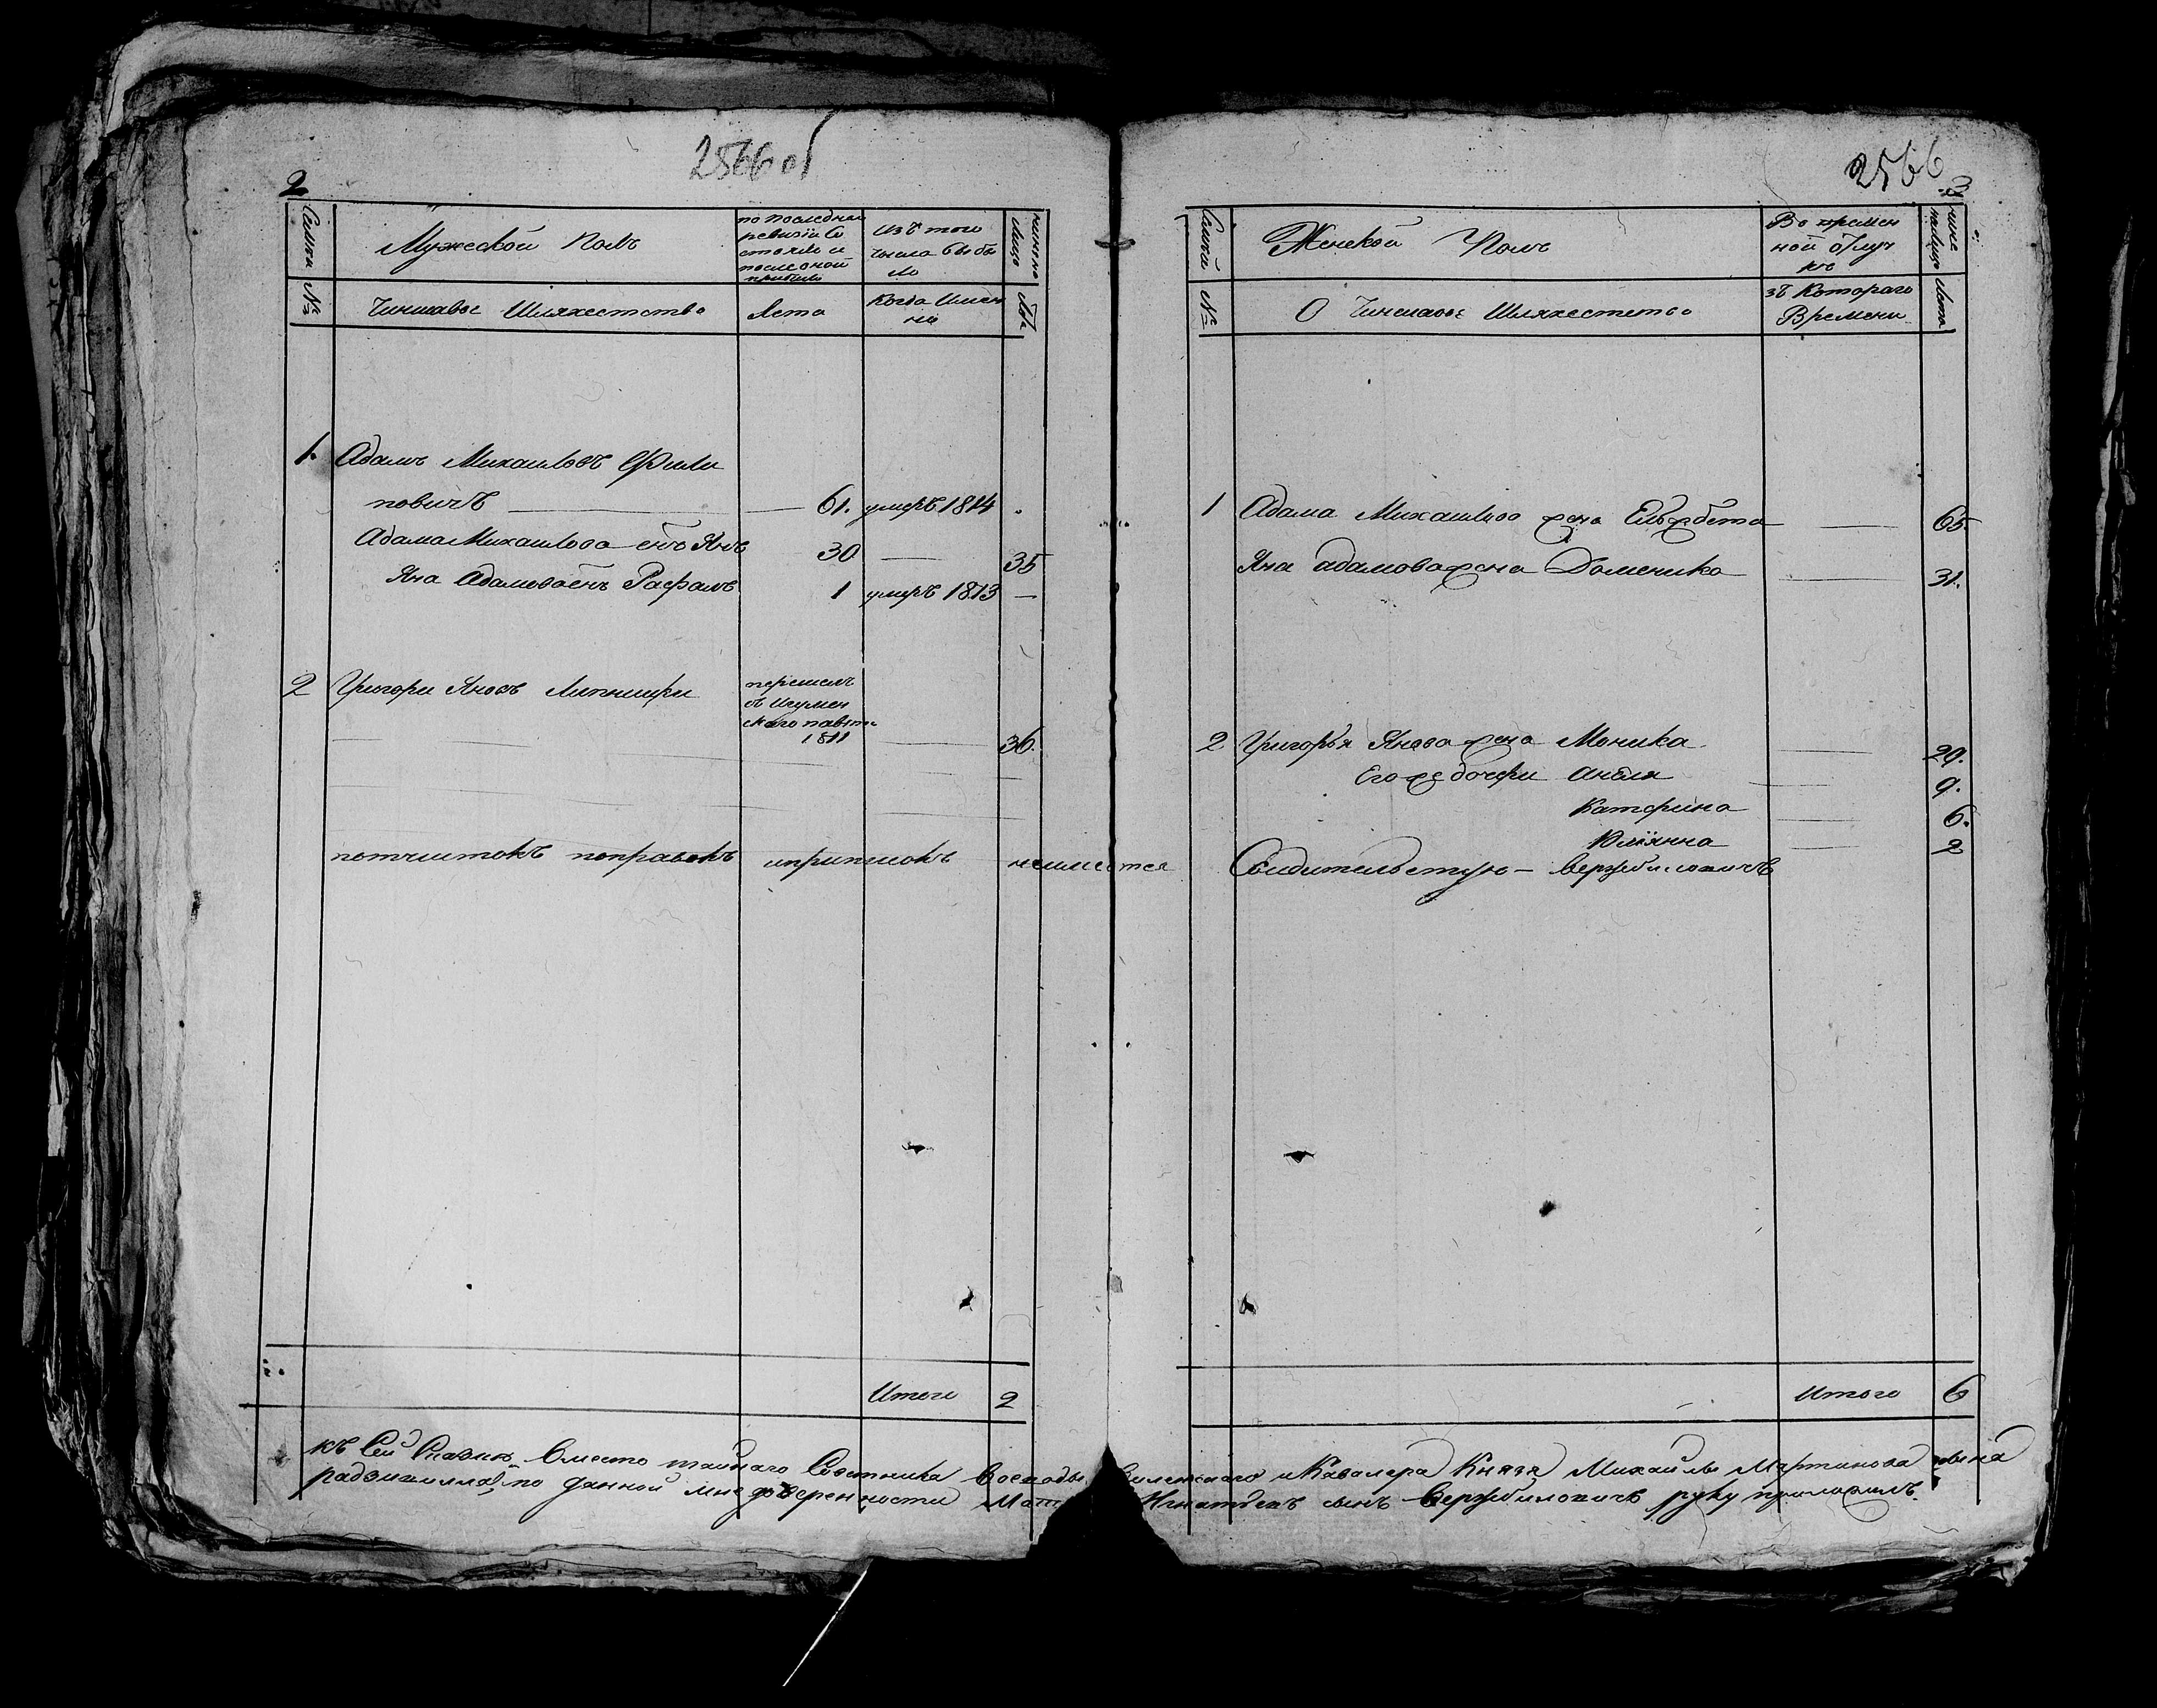 2566 об
2
Семьи
Мужескои Полъ
по последнеи
ревизіи со
стояло и
после оной
прибыло
изъ того
числа выбы
ло
ныне на
лицо
№
Чиншавое Шляхетство
Лета
Когда Имен
но
Лета
1. Адамъ Михаиловъ Фили
повичъ 61. умеръ 1814
Адама Михаилова снъ Янъ 30 35
Яна Адамова снъ Рафалъ 1 умеръ 1813
2 Григори Яновъ Липницки
перешелъ
съ Игумен
скаго павета
1811
36.
почистокъ поправокъ иприписокъ неимеется
Итого 2
2566
3
Семьи
Женской Полъ
Во времен
ной отлуч
ке
ныне
налицо
№
О Чиншавое Шляхетство
зъ Котораго
Времени
Лета
1 Адама Михаилова жена Ельжбета 65.
Яна адамова жена Доменика 31.
2 Григорья Янова жена Моника 29.
Его же дочери Анеля 9.
Катерина 6.
Юлiянна 2
Свидительствую - Вержбиловичъ
Итого 6
къ Сей Сказки вместо тайнаго Советника Воеводы Виленскаго и Кавалера Князя Михаилы Мартинова сына
радзивилла по данной мне доверенности Игнатьевъ сынъ Вержбиловичъ руку приложилъ.